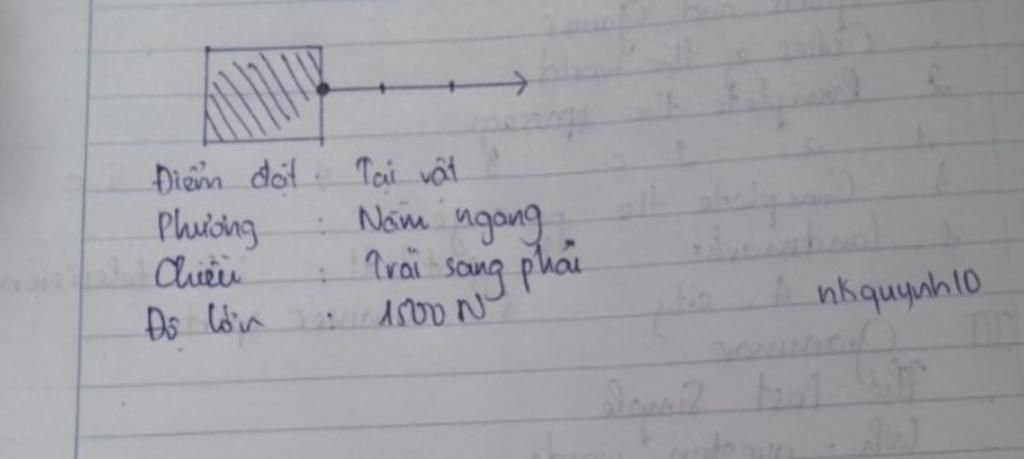 Điểm đặt : Tại vật
Phương : Nằm ngang
Chiều : Trái sang phải
Độ lớn : 1500 N
nkquynh10